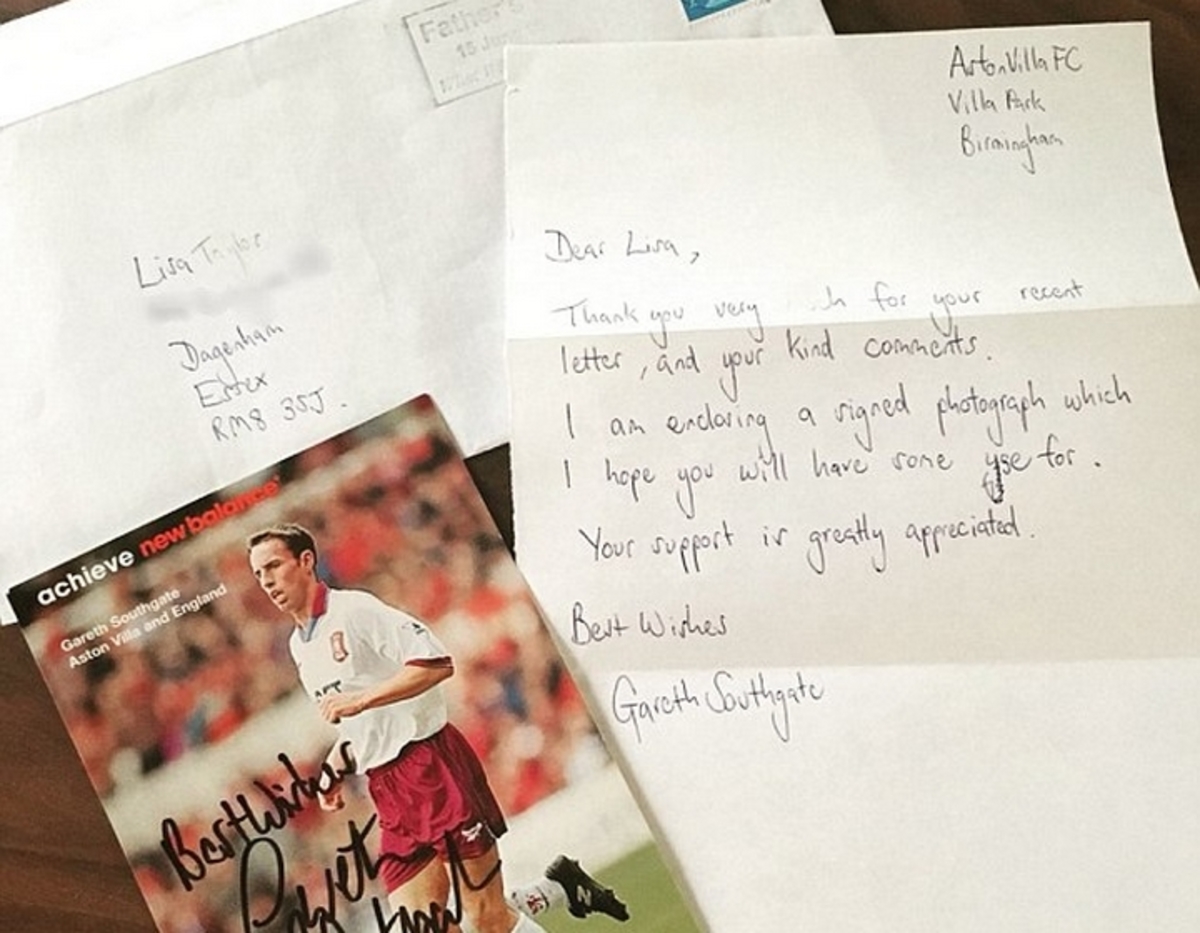 Father's
15 Jun
Lisa Taylor
Dagenham
Essex
RM8 3SJ.
Aston Villa FC
Villa Park
Birmingham
Dear Lisa,
Thank you very h for your recent
letter, and your kind comments.
I am enclosing a signed photograph which
I hope you will have some use for.
Your support is greatly appreciated.
Best Wishes
Gareth Southgate
achieve new balance
Gareth Southgate
Aston Villa and England
Best Wishes
Gareth